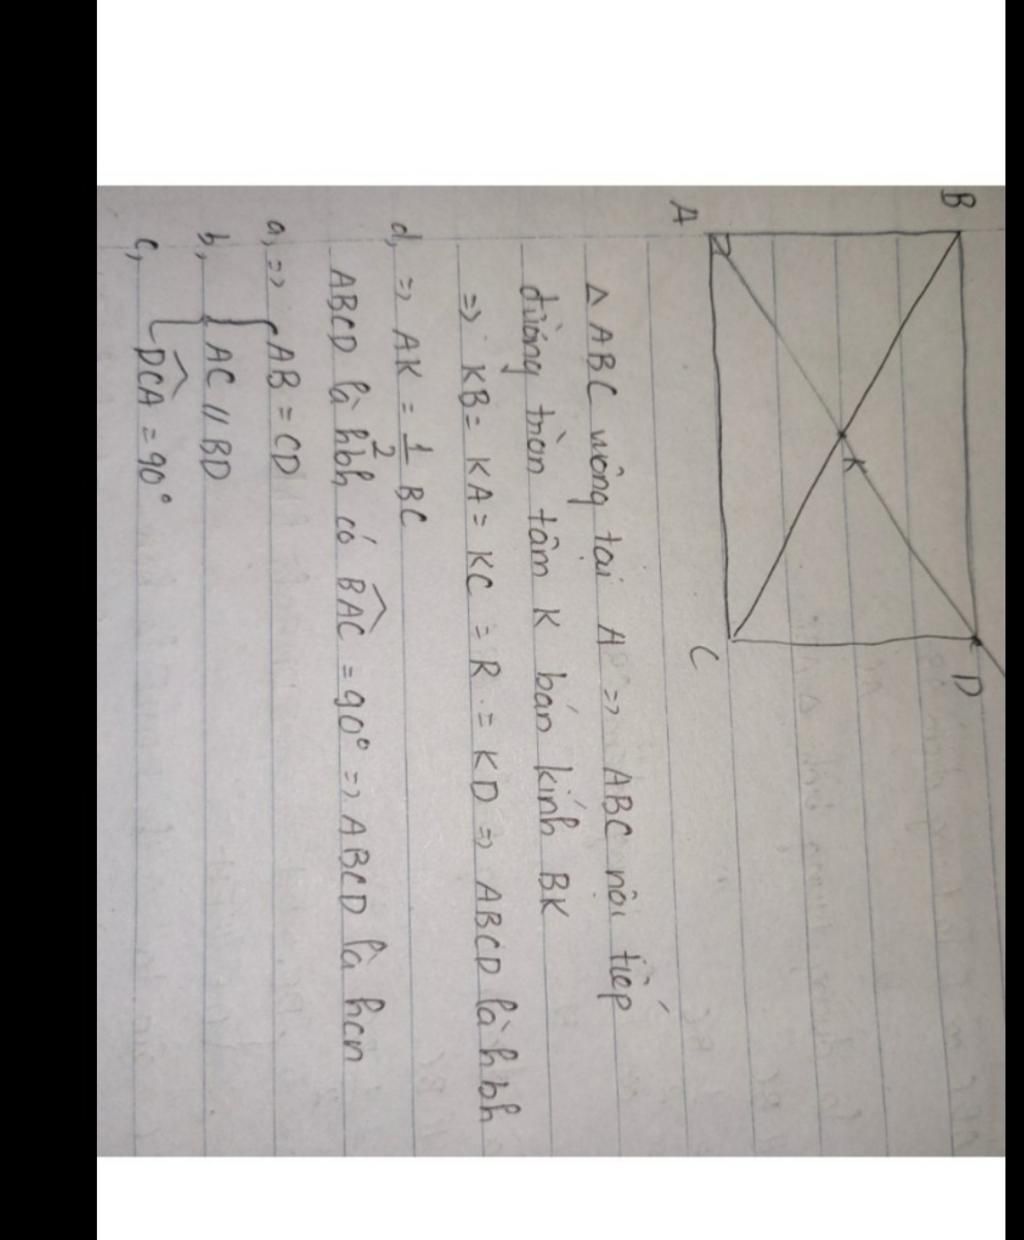 B
D
K
A
C
Δ ABC vuông tại A => ABC nội tiếp
đường tròn tâm K bán kính BK
=> KB = KA = KC = R = KD => ABCD là hbh
d, => AK = 1/2 BC
ABCD là hbh có BAC = 90° => ABCD là hcn
a, => { AB = CD
b, { AC // BD
c, { DCA = 90°